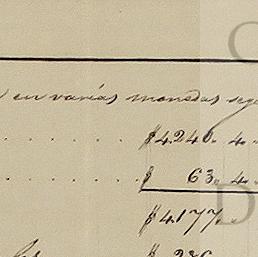 en varias monedas
$4.240. 4.
$ 63. 4.
$4.177.
$ 236